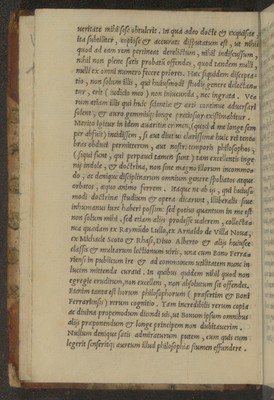 ueritate mihi sese obtulerit. In qua adeo docte & exquisite
ita subtiliter, copiose & accurate disputatum est, ut nihil
quod ad eam rem pertineat derelictum, nihil indiscussum,
nihil non plene satis probatũ offendas, quod tandem nulli,
nulli ex omni numero fecere priores. Hæc siquidem discepta-
tio, non solum illis, qui huiusmodi studij genere delectan-
tur, erit (iudicio meo) non iniucunda, nec ingrata. Ve-
rum etiam illis qui huic scientiæ & arti continue aduersari
solent, & auro gemmisq; longe pretiosior existimabitur.
Merito igitur in idem auaritiæ crimen, (quod à me longe sem
per abfuit) incidissem, si eam diutius clarissimæ huic rei tene-
bras obduci permitterem, aut nostri temporis philosophos,
(si qui sunt, qui perpauci tamen sunt) tam excellenti inge-
nij indole, & doctrina, non sine magna illorum incommo-
do, ac denique disciplinarum omnium genere studiosos æquè
orbatos, æquo animo ferrem. Itaque ne ab ijs, qui huiusce
modi doctrinæ studium & opera dicarunt, illiberalis siue
inhumanus iure haberi possem: sed potius quantum in me est
non solum mihi, sed etiam alijs prodesse ualerem, collecta-
nea quædam ex Raymũdo Lullo, ex Arnaldo de Villa Noua,
ex Michaele Scoto & Rhasi, Diuo Alberto & alijs huiusce
classis & multarum lectionum uiris, unà cum Bono Ferra-
riensi in publicum ire & ad communem utilitatem nunc in
lucem mittenda curaui. In quibus quidem nihil quod non
egregiè eruditum, non excellens, non absolutum sit offendes.
Etenim tanta est horum philosophorum (præsertim & Boni
Ferrariensis) rerum cognitio. Tam incredibilis rerum copia
ac diuina propemodum dicendi uis, ut Bonum ipsum omnibus
alijs præponendum & longè principem non dubitauerim.
Nullum denique satis admiraturum putem, cum quis eum
legerit senseritq; aureum illud philosophiæ flumen effundere.